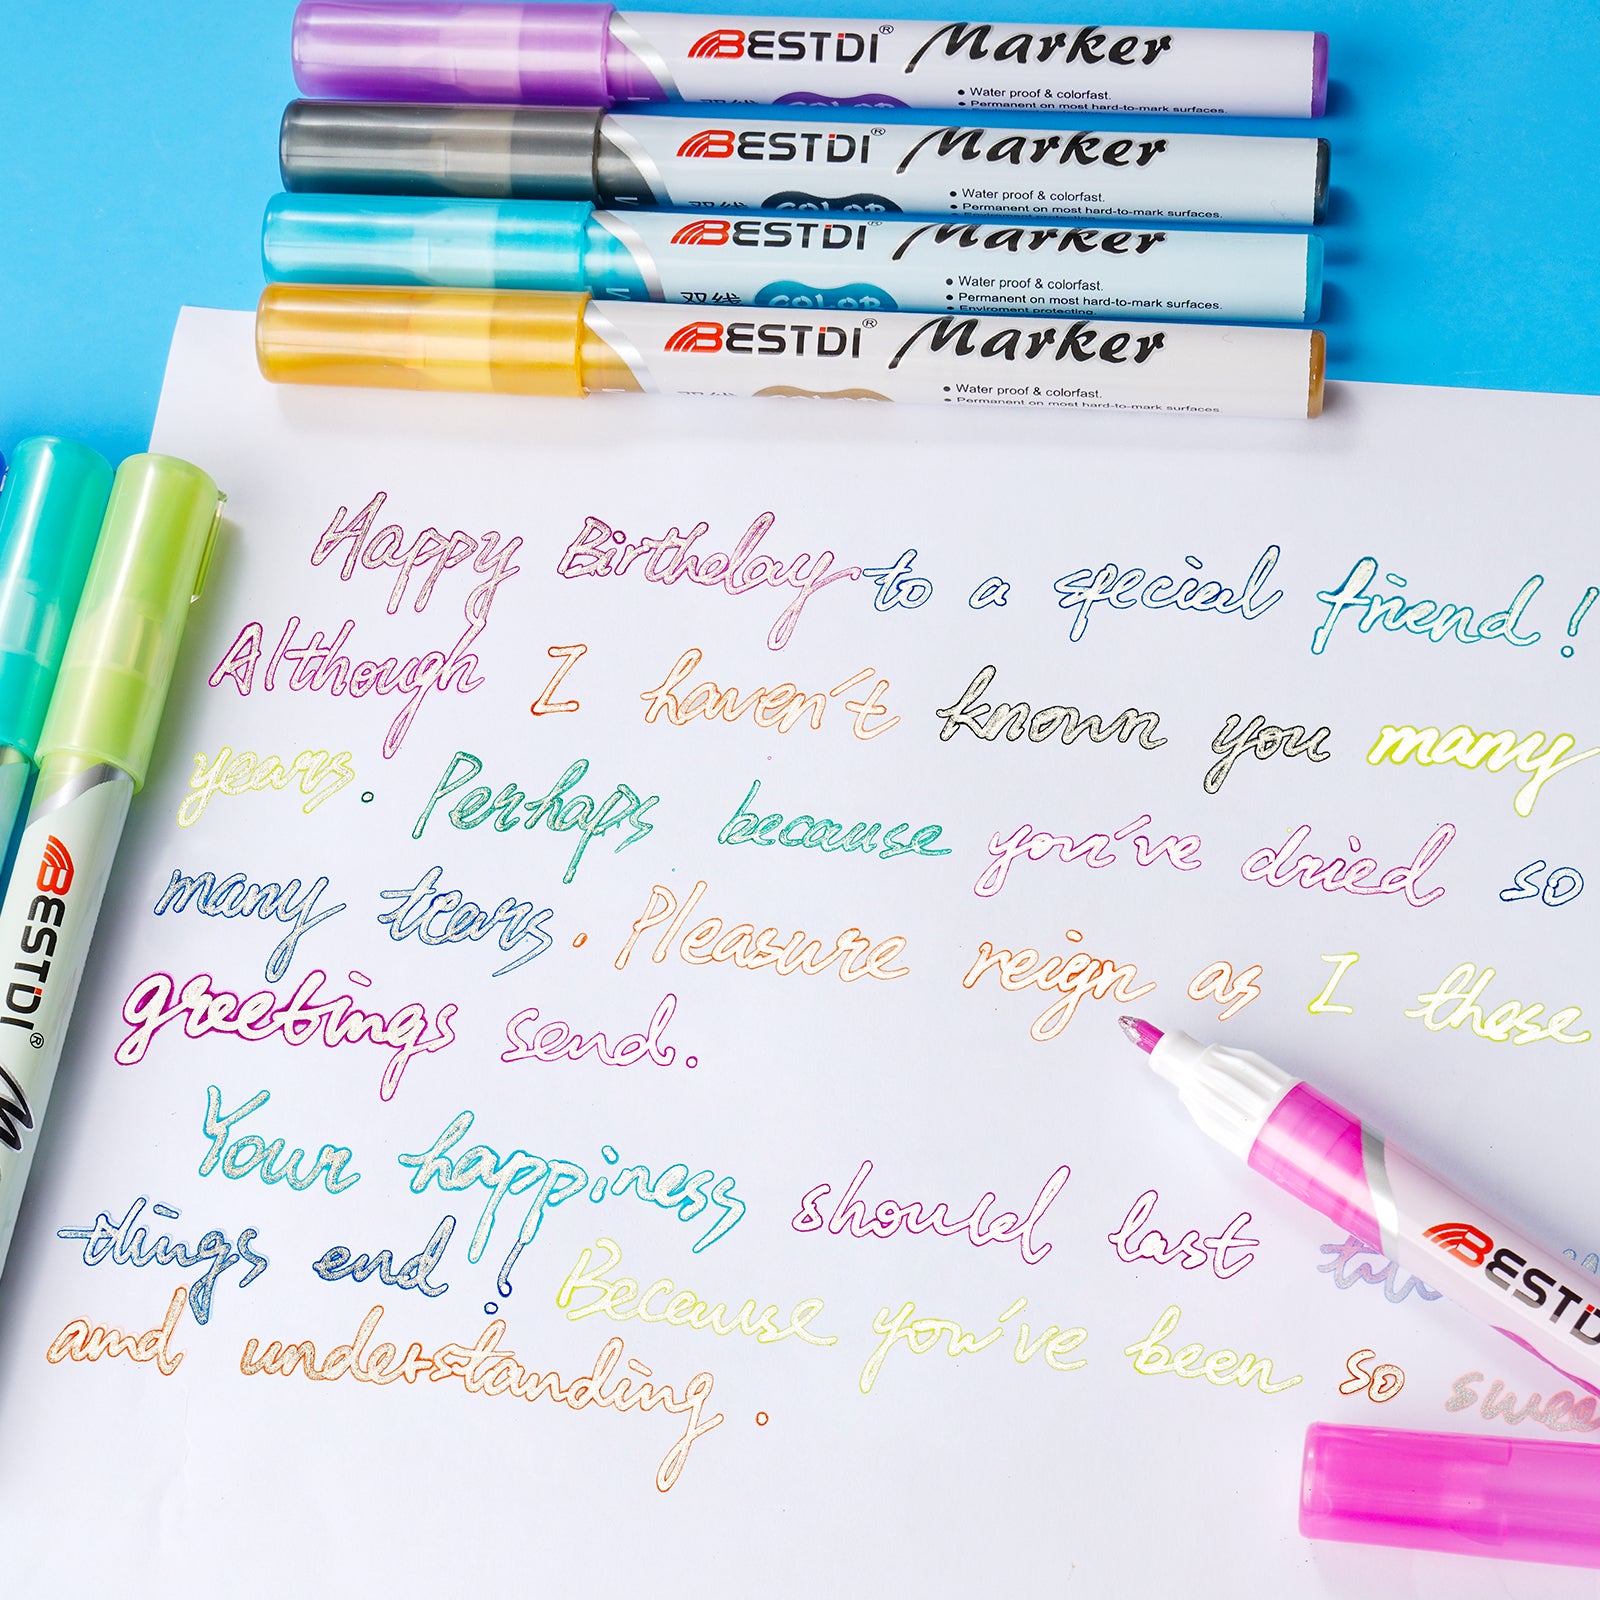 BESTDI® Marker
Water proof & colorfast.
Permanent on most hard-to-mark surfaces.
双线 COLOR
BESTDI® Marker
Water proof & colorfast.
Permanent on most hard-to-mark surfaces.
Enviroment protecting.
双线 COLOR
BESTDI® Marker
Water proof & colorfast.
Permanent on most hard-to-mark surfaces.
Enviroment protecting.
双线 COLOR
BESTDI® Marker
Water proof & colorfast.
Permanent on most hard-to-mark surfaces.
双线 COLOR
BESTDI® M
Happy Birthday to a special friend!
Although I haven't known you many
years. Perhaps because you've dried so
many tears. Pleasure reign as I these
greetings send.
Your happiness should last
things end! Because you've been so swee
and understanding.
BESTD